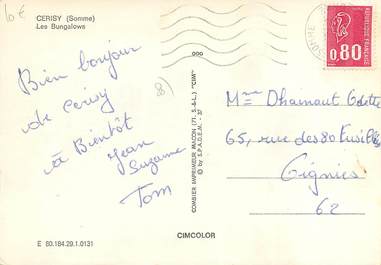 10€
CERISY (Somme)
Les Bungalows
Bien bonjour
de Cerisy
à Bientôt
Jean
Suzanne
Tom
E 80.184.29.1.0131
000
COMBIER IMPRIMEUR MACON (71. S.-&-L.) "CIM"
© by S.P.A.D.E.M. - 37
CIMCOLOR
0,80
Mme Dhainaut Odette
65, rue des 80 Fusillés
Oignies
62